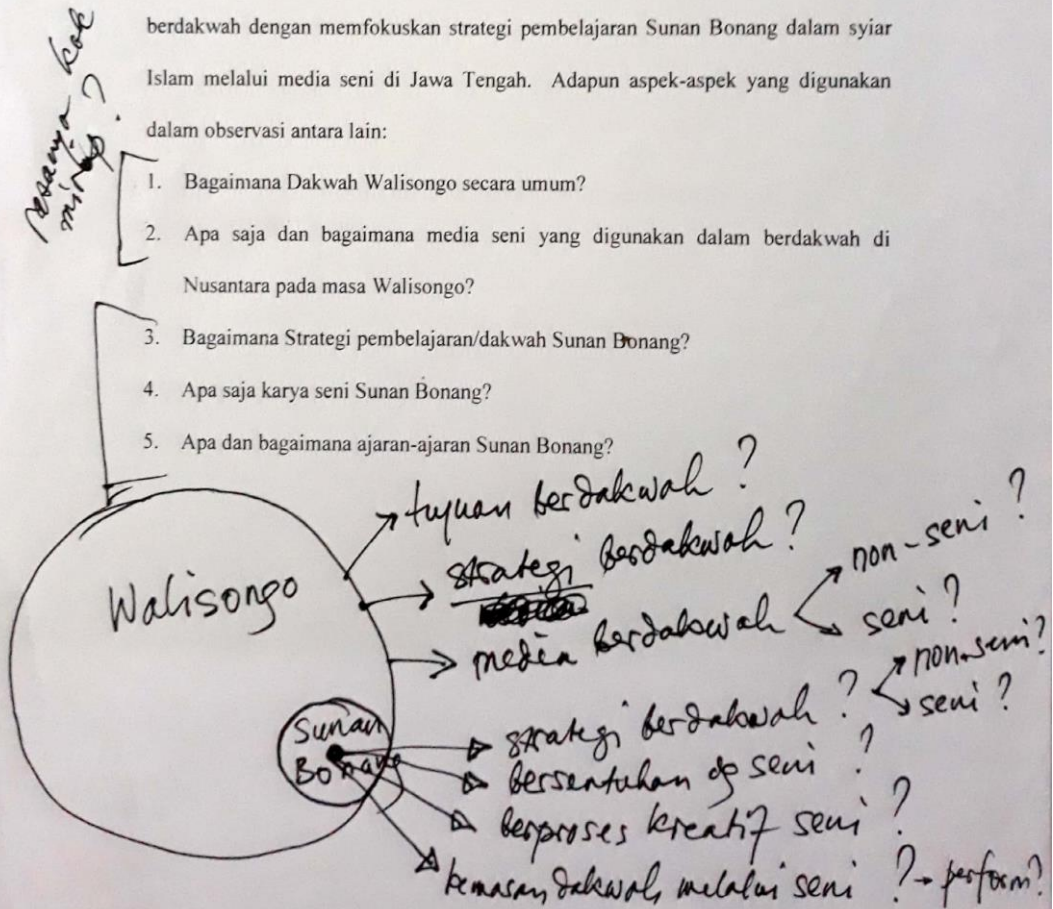 berdakwah dengan memfokuskan strategi pembelajaran Sunan Bonang dalam syiar
Islam melalui media seni di Jawa Tengah. Adapun aspek-aspek yang digunakan
dalam observasi antara lain:
rasanya kok
mirip?
1. Bagaimana Dakwah Walisongo secara umum?
2. Apa saja dan bagaimana media seni yang digunakan dalam berdakwah di
Nusantara pada masa Walisongo?
3. Bagaimana Strategi pembelajaran/dakwah Sunan Bonang?
4. Apa saja karya seni Sunan Bonang?
5. Apa dan bagaimana ajaran-ajaran Sunan Bonang?
Walisongo
tujuan berdakwah?
strategi berdakwah?
media berdakwah
non-seni?
seni?
Sunan
Bonang
strategi berdakwah?
non-seni?
seni?
bersentuhan dg seni?
berproses kreatif seni?
kemasan dakwah melalui seni? → perform?